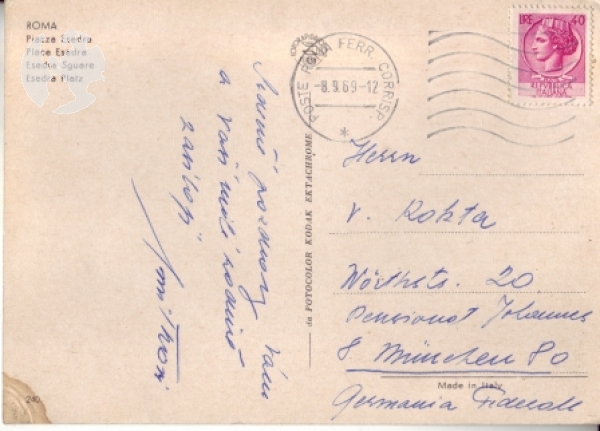 ROMA
Piazza Esedra
Place Esedra
Esedra Square
Esedra Platz
POSTE ROMA FERR. CORRISP.
-8.9.69-12
LIRE 40
Herrn
v. Rokzta
Wörthstr. 20
Pensionat Johannes
8 München 80
Germania Federale
pozdravy Vám
a Vaší milé rodině
da FOTOCOLOR KODAK EKTACHROME
Made in Italy
240